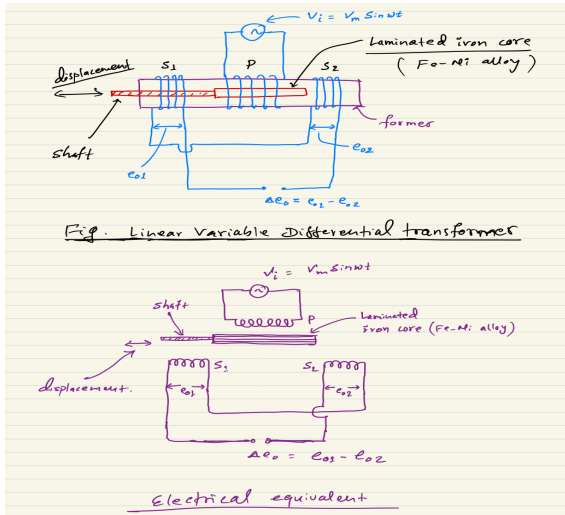 Vi = Vm Sin wt
S1
P
S2
Laminated iron core
(Fe-Ni alloy)
displacement
former
Shaft
e01
e02
Δe0 = e01 - e02
Fig. Linear Variable Differential transformer
Vi = Vm Sin wt
Shaft
P
Laminated
iron core (Fe-Ni alloy)
displacement.
S1
S2
e01
e02
Δe0 = e01 - e02
Electrical equivalent